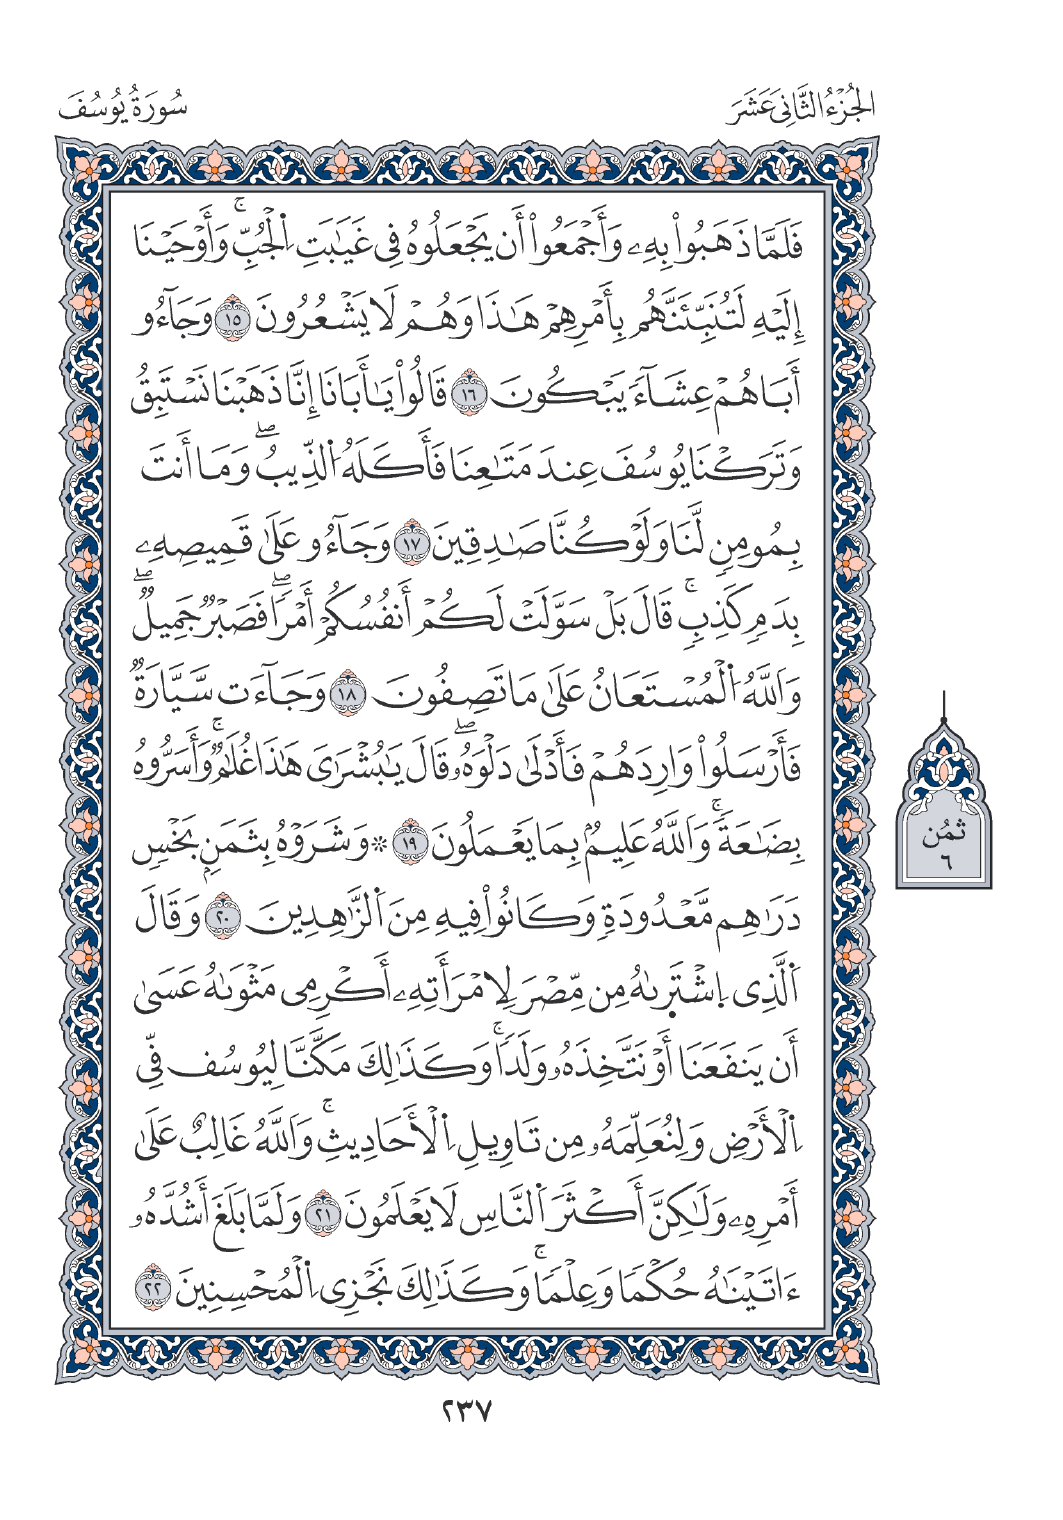 الجُزْءُ الثَّانِيَ عَشَرَ
سُورَةُ يُوسُفَ
فَلَمَّا ذَهَبُواْ بِهِۦ وَأَجْمَعُواْ أَن يَجْعَلُوهُ فِى غَيَٰبَتِ اِ۬لْجُبِّۚ وَأَوْحَيْنَا
إِلَيْهِ لَتُنَبِّئَنَّهُم بِأَمْرِهِمْ هَٰذَا وَهُمْ لَا يَشْعُرُونَ ١٥ وَجَآءُو
أَبَاهُمْ عِشَآءً يَبْكُونَ ١٦ قَالُواْ يَٰأَبَانَا إِنَّا ذَهَبْنَا نَسْتَبِقُ
وَتَرَكْنَا يُوسُفَ عِندَ مَتَٰعِنَا فَأَكَلَهُ اُ۬لذِّيبُۖ وَمَا أَنتَ
بِمُومِنٍ لَّنَا وَلَوْ كُنَّا صَٰدِقِينَ ١٧ وَجَآءُو عَلَىٰ قَمِيصِهِۦ
بِدَمٍ كَذِبٍۚ قَالَ بَلْ سَوَّلَتْ لَكُمْ أَنفُسُكُمْ أَمْرًاۖ فَصَبْرٌ جَمِيلٌۖ
وَاَللَّهُ اُ۬لْمُسْتَعَانُ عَلَىٰ مَا تَصِفُونَ ١٨ وَجَآءَت سَّيَّارَةٌ
فَأَرْسَلُواْ وَارِدَهُمْ فَأَدْلَىٰ دَلْوَهُۥۖ قَالَ يَٰبُشْرَٰىَ هَٰذَا غُلَٰمٌۚ وَأَسَرُّوهُ
بِضَٰعَةًۚ وَاَللَّهُ عَلِيمٌ بِمَا يَعْمَلُونَ ١٩ ۞ وَشَرَوْهُ بِثَمَنٍ بَخْسٍ
دَرَٰهِم مَّعْدُودَةٍ وَكَانُواْ فِيهِ مِنَ اَ۬لزَّٰهِدِينَ ٢٠ وَقَالَ
اَ۬لَّذِى اِ۪شْتَر۪ىٰهُ مِن مِّصْرَ لِامْرَأَتِهِۦ أَكْرِمِى مَثْوَىٰهُ عَسَىٰ
أَن يَنفَعَنَا أَوْ نَتَّخِذَهُۥ وَلَدًاۚ وَكَذَٰلِكَ مَكَّنَّا لِيُوسُف فِّى
اِ۬لْأَرْضِ وَلِنُعَلِّمَهُۥ مِن تَاوِيلِ اِ۬لْأَحَادِيثِۚ وَاَللَّهُ غَالِبٌ عَلَىٰ
أَمْرِهِۦ وَلَٰكِنَّ أَكْثَرَ اَ۬لنَّاسِ لَا يَعْلَمُونَ ٢١ وَلَمَّا بَلَغَ أَشُدَّهُۥ
ءَاتَيْنَٰهُ حُكْمًا وَعِلْمًاۚ وَكَذَٰلِكَ نَجْزِى اِ۬لْمُحْسِنِينَ ٢٢
ثُمُن
٦
٢٣٧